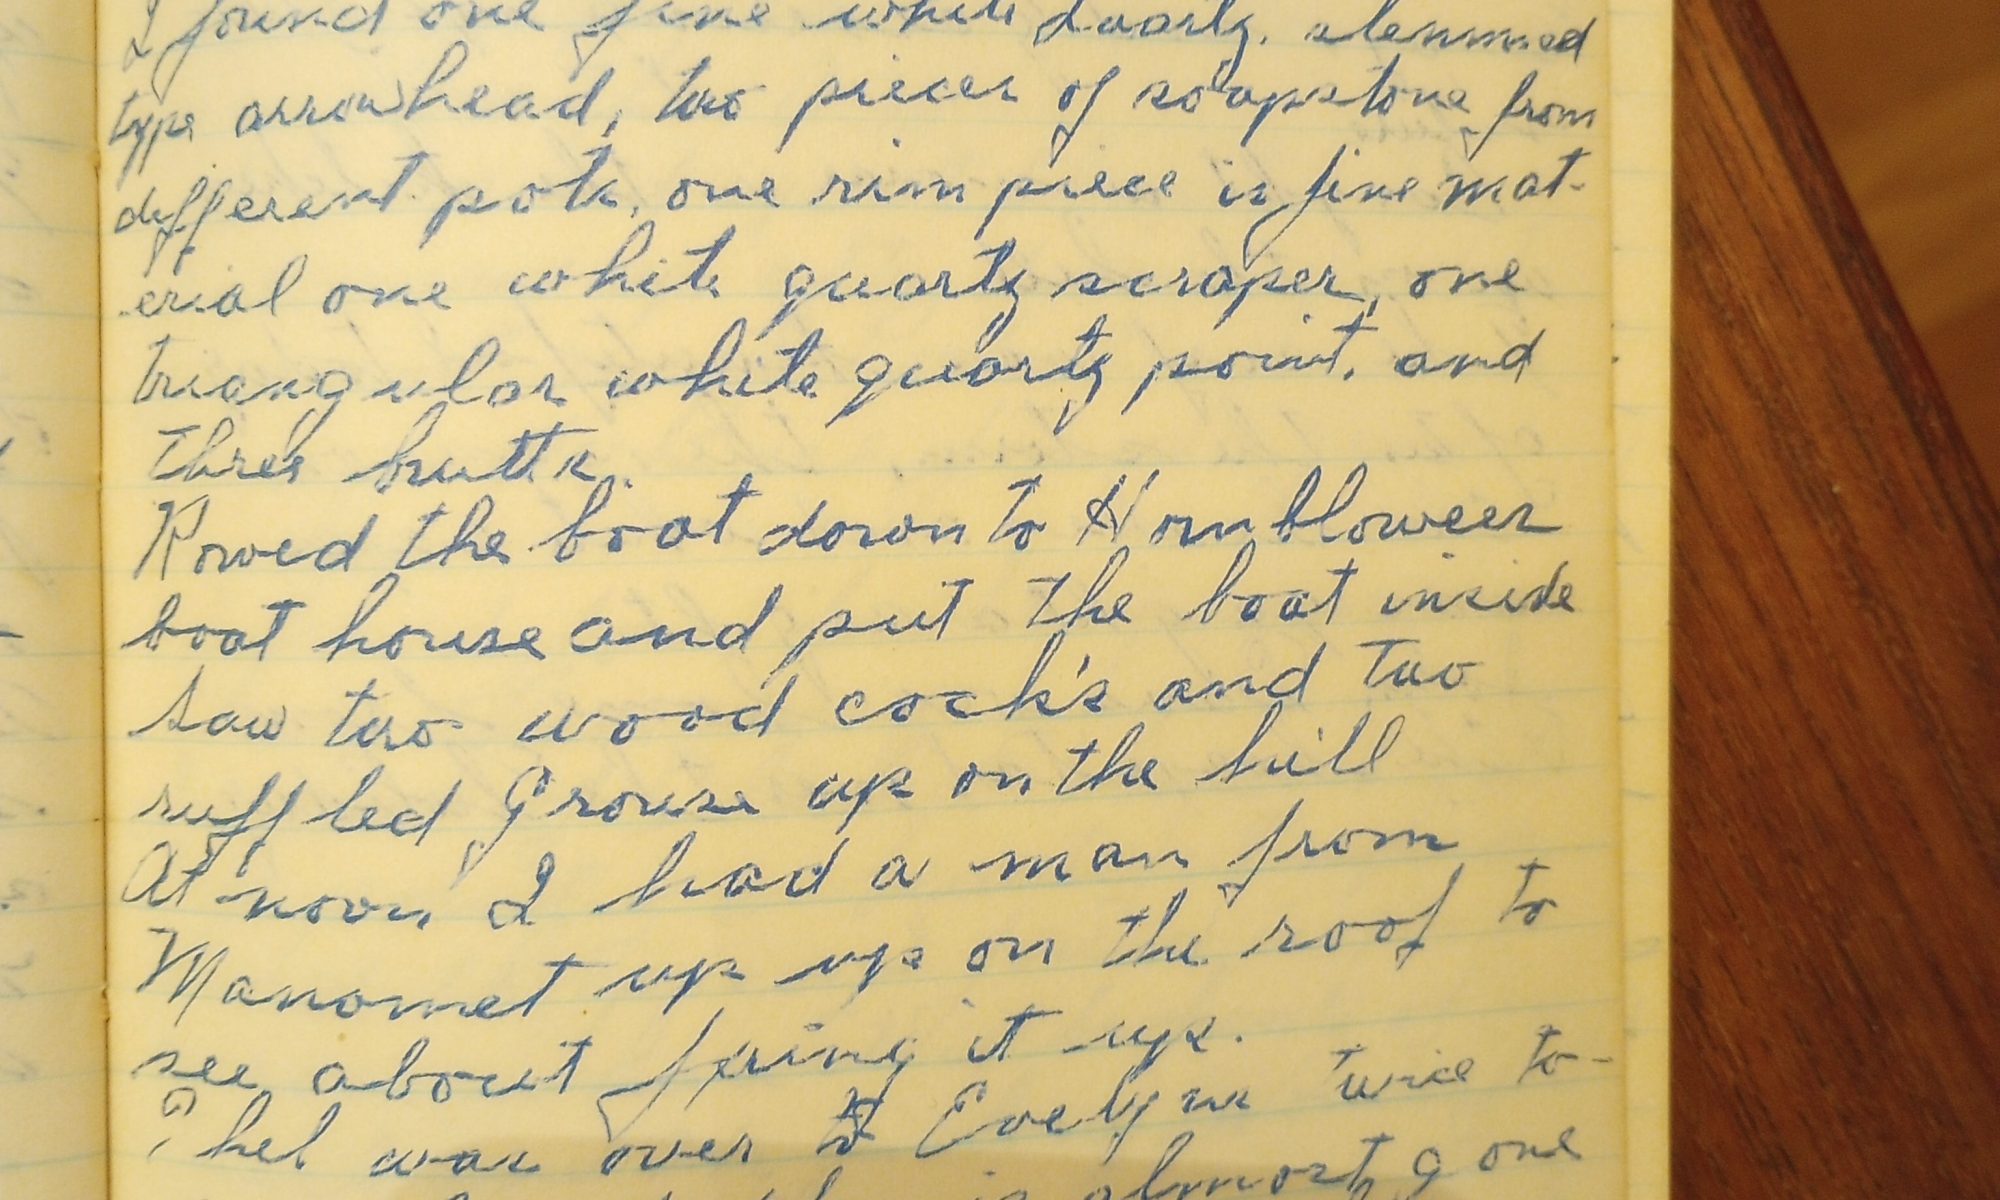 I found one fine white Quartz, stemmed
type arrowhead, two pieces of soapstone from
different pots, one rim piece is fine mat-
erial one white quartz scraper, one
triangular white quartz point, and
three butts.
Rowed the boat down to Hornbloweer
boat house and put the boat inside
Saw two wood cock's and two
ruffled Grouse up on the hill
At noon I had a man from
Manomet up up on the roof to
see about fixing it up.
Thel was over to Evelyns twice to-
is almost gone